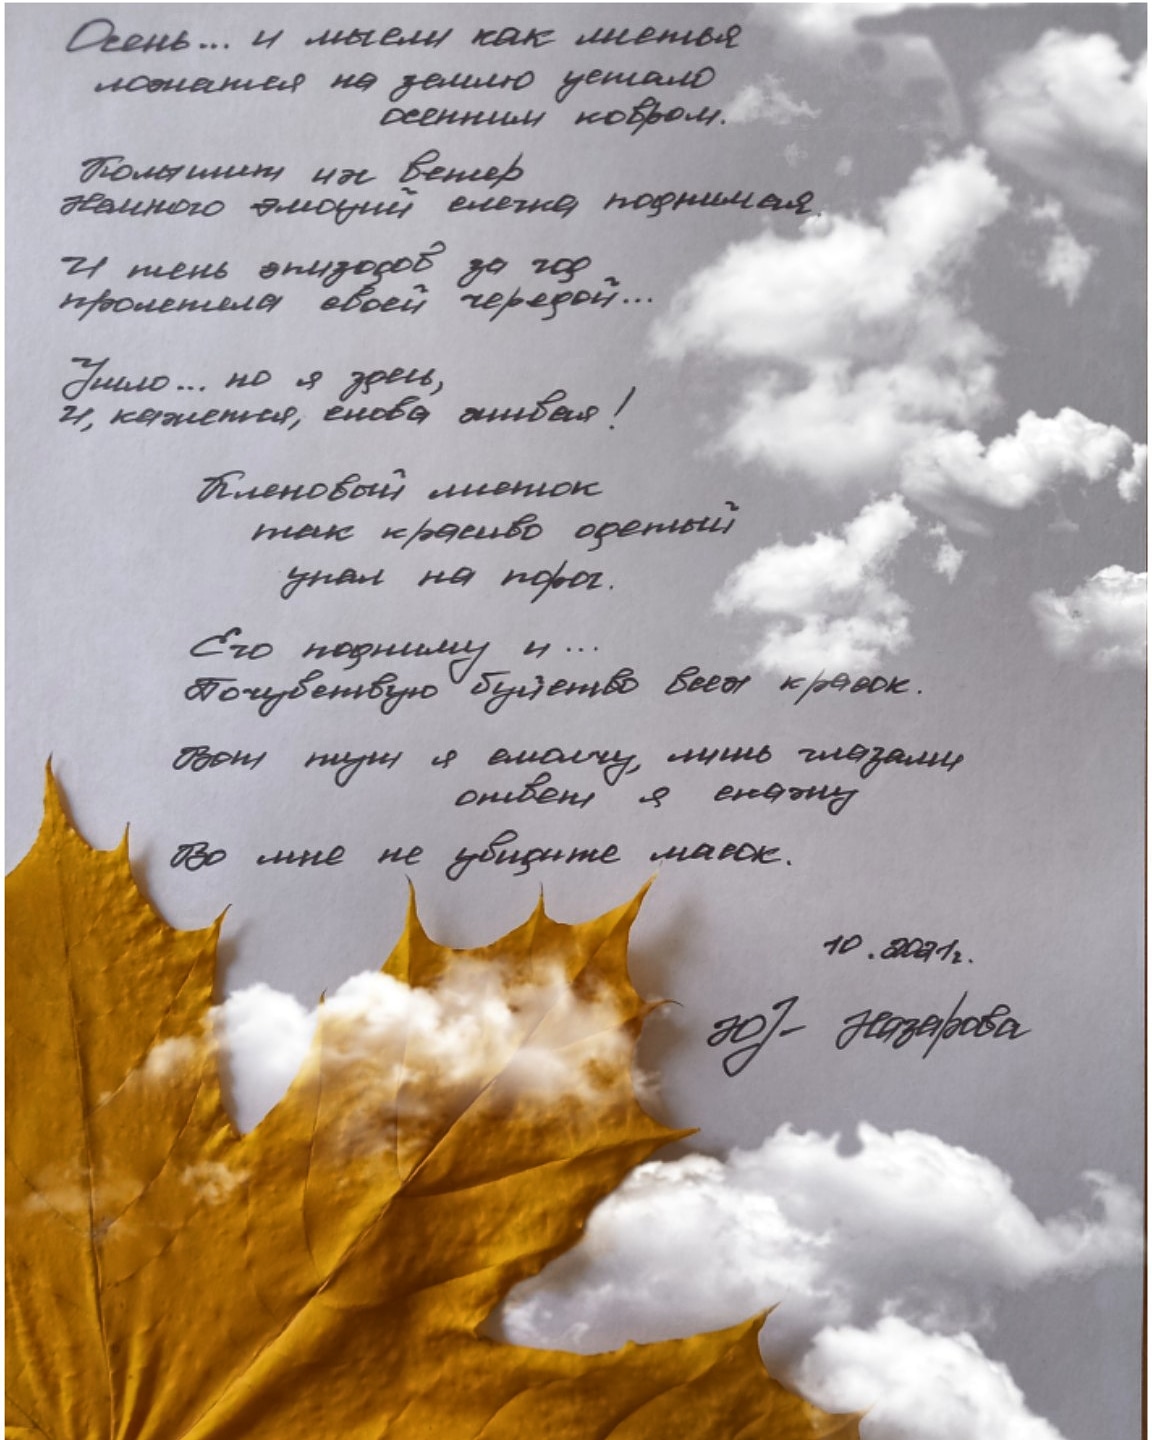 Осень... и мысли как листья
ложатся на землю устало
осенним ковром.
Колышит их ветер
Немного эмоций слегка поднимая.
И тень эпизодов за год
пролетела своей чередой...
Ушло... но я здесь,
И, кажется, снова живая!
Кленовый листок
так красиво одетый
упал на порог.
Его подниму и...
Почувствую буйство всех красок.
Вот тут я смолчу, лишь глазами
ответ я скажу
Во мне не увидите масок.
10.2021г.
Назарова